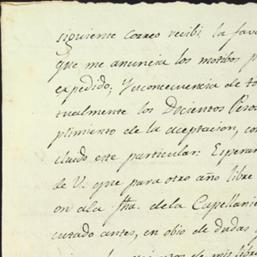 siguiente correo recibi la fava
que me anuncia los motibos p
expedido; Yuconcuencia de to
tualmente los Docientos Peso
plimiento de la aceptacion, co
cluido este particular: Esperan
de V. que para otro año libre
on ala fha. dela Capellani
curado antes, en obio de dudas
de mis libre